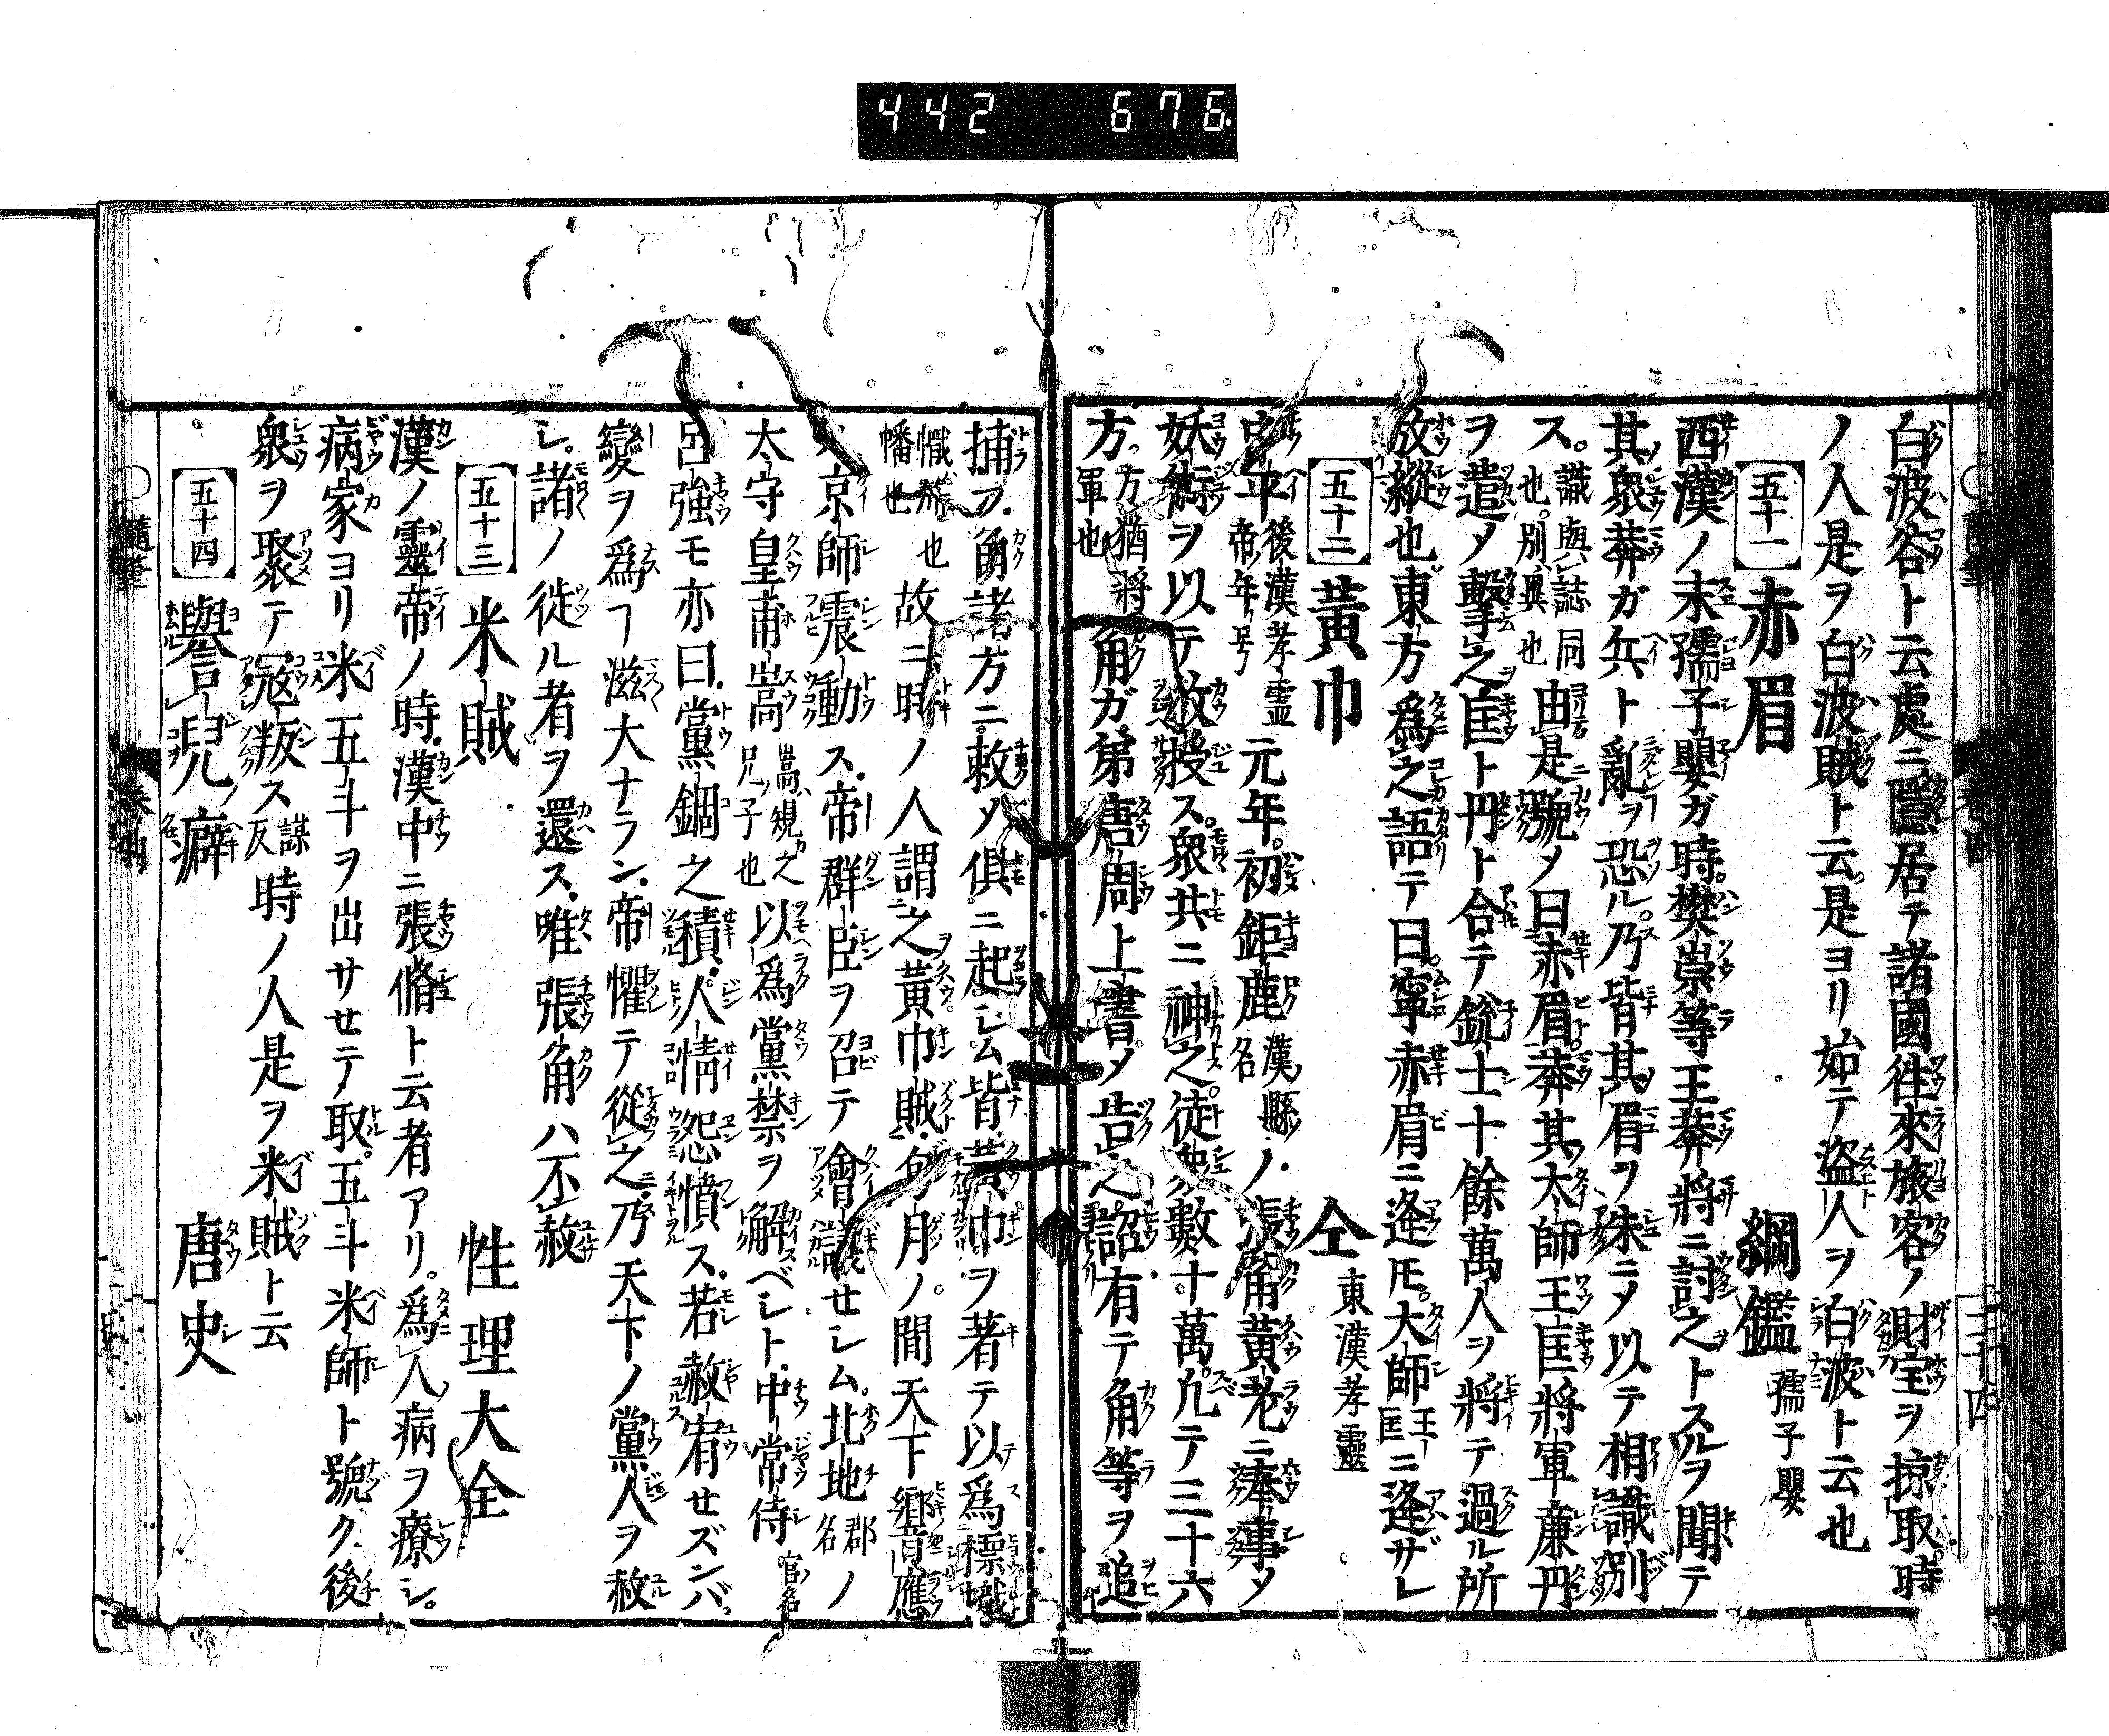 442 676
白波谷ト云處ニ隱居テ諸國徃來旅客ノ財宝ヲ掠取時
ノ人是ヲ白波賊ト云是ヨリ始テ盜人ヲ白波ト云也
五十一 赤眉 綱鑑 孺子嬰
西漢ノ末孺子嬰ガ時樊崇等王莽將ニ討之トスルヲ聞テ
其衆莽ガ兵ト亂ヿヲ恐ル乃皆其眉ヲ朱ニメ以テ相識別
ス。識與誌同也。別異也 由是號メ曰赤眉莽其太師王匡將軍廉丹
ヲ遣メ擊之匡ト丹ト合テ銳士十餘萬人ヲ將テ過ル所
放縱也東方爲之語テ曰寧赤眉ニ逢モ大師王匡ニ逢ザレ
五十二 黃巾 仝 東漢孝靈
中平 後漢孝霊帝年号 元年初鉅鹿 漢縣名 ノ張角黃老ニ奉事メ
妖術ヲ以テ教授ス衆共ニ神之徒衆數十萬凢テ三十六
方 方猶將軍也 角ガ弟唐周上書メ告之詔有テ角等ヲ追
捕フ角諸方ニ敕メ俱ニ起シム皆黃巾ヲ著テ以爲標幟
幟旛也幡也 故ニ時ノ人謂之黃巾賊旬月ノ間天下響應
京師震動ス帝群臣ヲ召テ會議セシム北地 郡名 ノ
太守皇甫嵩 嵩規之兄子也 以爲黨禁ヲ解ベシト中常侍 官名
呂強モ亦曰黨錮之積人情怨憤ス若赦宥セズンバ
變ヲ爲ヿ滋大ナラン帝懼テ從之乃天下ノ黨人ヲ赦
シ諸ノ徙ル者ヲ還ス唯張角ハ不赦
五十三 米賊 性理大全
漢ノ靈帝ノ時漢中ニ張脩ト云者アリ爲人病ヲ療シ
病家ヨリ米五斗ヲ出サセテ取五斗米師ト號ク後
衆ヲ聚テ寇叛ス 謀反 時ノ人是ヲ米賊ト云
五十四 譽兒癖 唐史